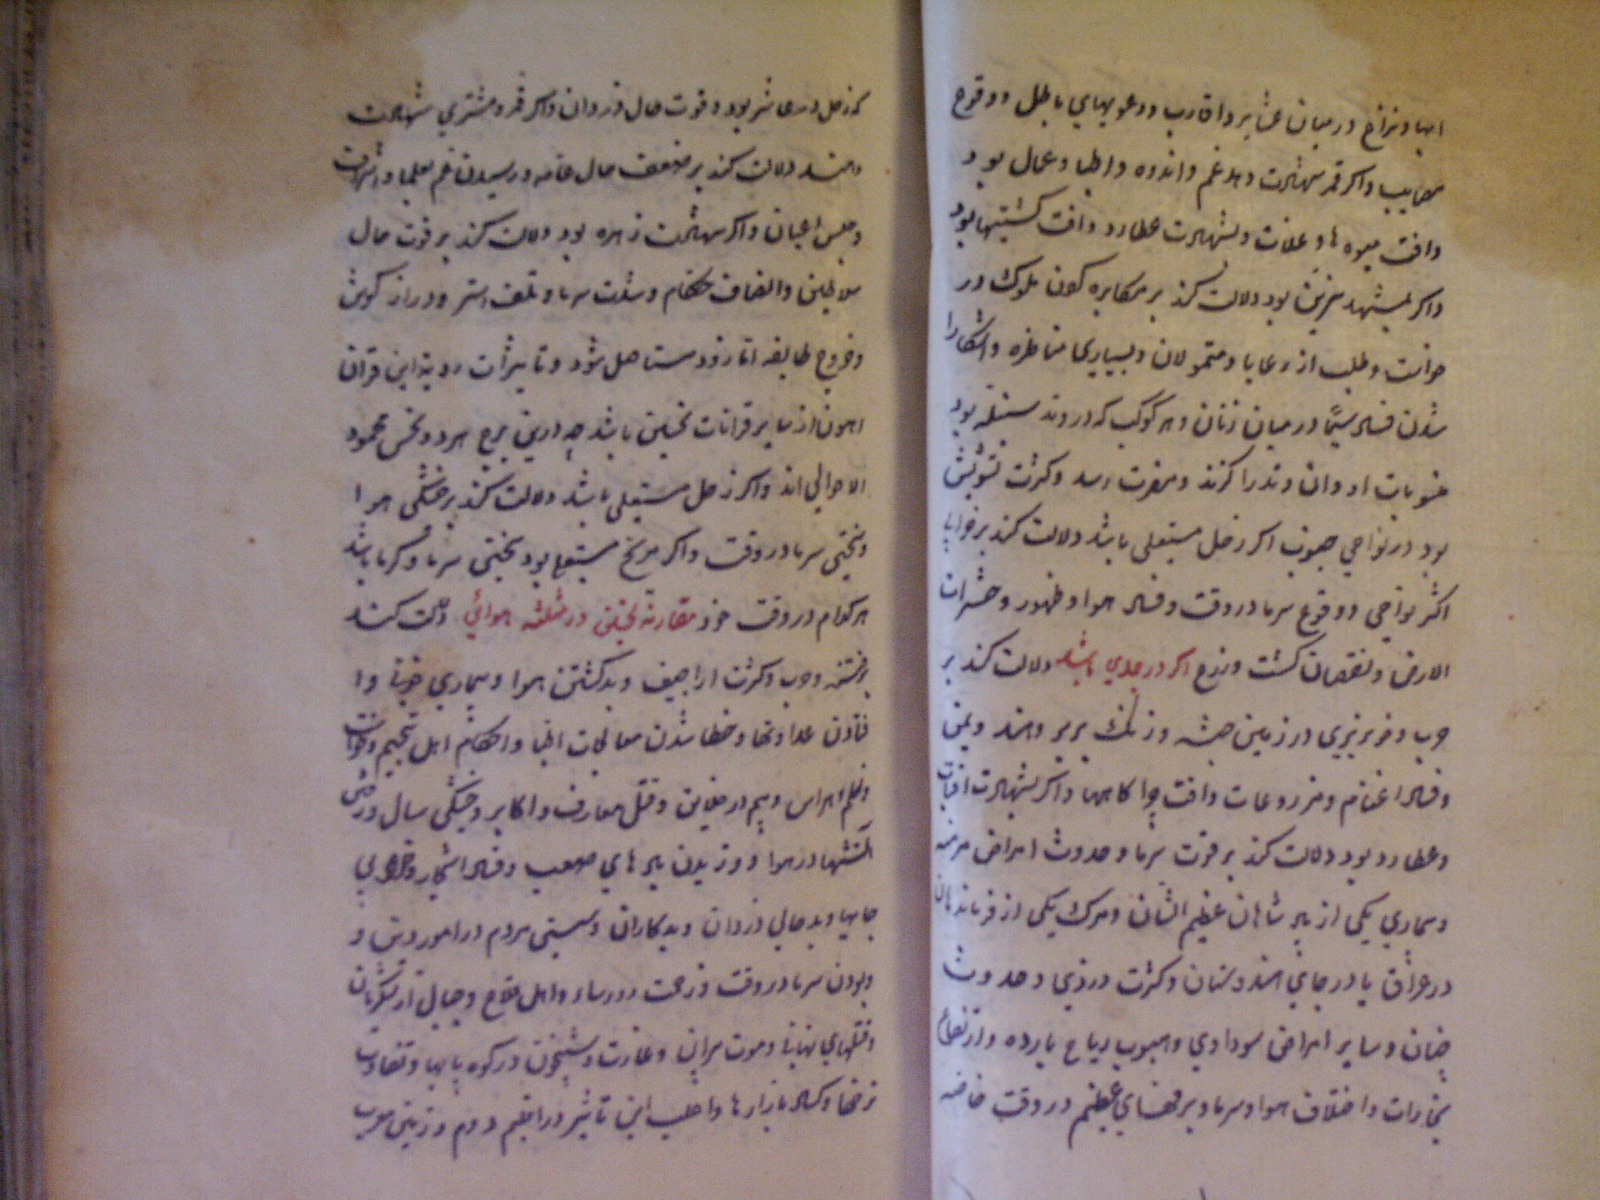 ابها و نزاع در میان عشایر و اقارب و دعویهای باطل و وقوع
مصایب و اکر قمر بشهادت دهد غم و اندوه و اطبا و عمال بود
و افت میوه ها و غلات و بشهادت عطارد و افت کشتیها بود
و اکر بمشهد نیرین بود دلالت کند بر مکابره کون ملوک در
خواست و طلب از رعایا و متمولان و بسیاری مناظره و اشکارا
شدن فساد سیما در میان زنان و هر کوکب که در وتد سنبله بود
منسوبات او دران وتد را کزند و مضرت رسد و کثرت تشویش
بود در نواحی جنوب اکر زحل مستعلی باشد دلالت کند بر خرابی
اکثر نواحی و وقوع سرما در وقت و فساد هوا و ظهور و حشرات
الارض و نقصان کشت و زرع اکر در جدی باشد دلالت کند بر
حرب و خونریزی در زمین حبشه و زنک و بربر و هند و یمن
و فساد اغنام و مزروعات و افت چراکاهها و اکر بشهادت افتاب
و عطارد بود دلالت کند بر قوت سرما و حدوث امراض مزمنه
و بیماری یکی از پادشاهان عظیم الشان و مرک یکی از فرماندهان
در عراق یا در جای هندوستان و کثرت دزدی و حدوث
و سایر امراض سوداوی و هبوب ریاح بارده و ارتفاع
بخارات و اختلاف هوا و سرما و برفهای عظیم در وقت خاصه
که زحل در عاشر بود و قوت حال دزدان و اکر قمر و مشتری شهادت
دهند دلالت کند بر ضعف حال عامه و رسیدن غم بعلما و اشراف
و حبس اعیان و اکر بشهادت زهره بود دلالت کند بر قوت حال
سلاطین و انصاف حکام و شدت سرما و تلف استر و دراز کوش
و خروج طایفه اما زود مستاصل شود و تاثیرات ردیه این قران
اهون از سایر قرانات نحسین باشد چه درین برج هر دو نحس محمود
الاحوالی اند و اکر زحل مستعلی باشد دلالت کند بر خشکی هوا
و سختی سرما در وقت و اکر مریخ مستعلی بود سختی سرما و کرما باشد
هر کدام در وقت خود مقارنه نحسین در مثلثه هوائی دلالت کند
بر فتنه و حرب و کثرت اراجیف و بد کشتن هوا و بیماری خونی و ا
فتادن عداوتها و خطا شدن معالجات اطبا و احکام اهل تنجیم و
و ظلم و هراس و بیم در خلایق و قتل معارف و اکابر و خشکی سال
اتشها در هوا و وزیدن بادهای صعب و فساد اشجار و خرابی
جایها و بد حالی دزدان و بدکاران و سستی مردم در امور دین و
و بودن سرما در وقت و زحمت روسا و اهل قلاع و جبال از لشکریان
و قتلهای نهانی و موت سران و غارت و شبیخون در کوه پایها و تفاوت
نرخها و کساد بازارها و اغلب این تاثیر در اقلیم دوم و زمین عرب